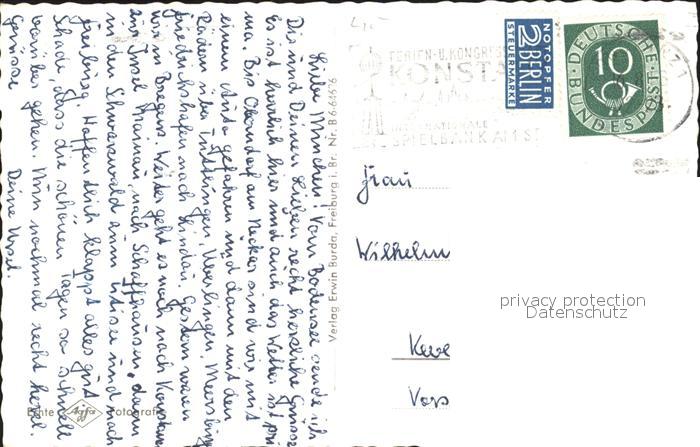 Liebe Mänchen! Vom Bodensee sende ich
Dir und Deinen Lieben recht herzliche Grüsse
Es ist herrlich hier und auch das Wetter ist pri
ma. Bis Oberndorf am Neckar sind wir mit
einem Auto gefahren und dann mit den
Rädern über Tuttlingen, Überlingen, Meersburg
Friedrichshafen nach Lindau. Gestern waren
wir in Bregenz. Weiter geht es noch nach Konstanz
zur Insel Mainau, nach Schaffhausen, dann
in den Schwarzwald zum Titisee und nach
Freiburg. Hoffentlich klappt alles gut
Schade, dass die schönen Tage so schnell
vorüber gehen. Nun nochmal recht herzl.
Grüsse
Deine Ursel.
Echte Agfa Fotografie
Verlag Erwin Burda, Freiburg i. Br. Nr. B 6-646/6
FERIEN-U. KONGRESS
KONSTA
INTERNATIONALE
SPIELBANK
NOTOPFER
2 BERLIN
STEUERMARKE
DEUTSCHE
BUNDESPOST
10
Frau
Wilhelm
privacy protection
Datenschutz